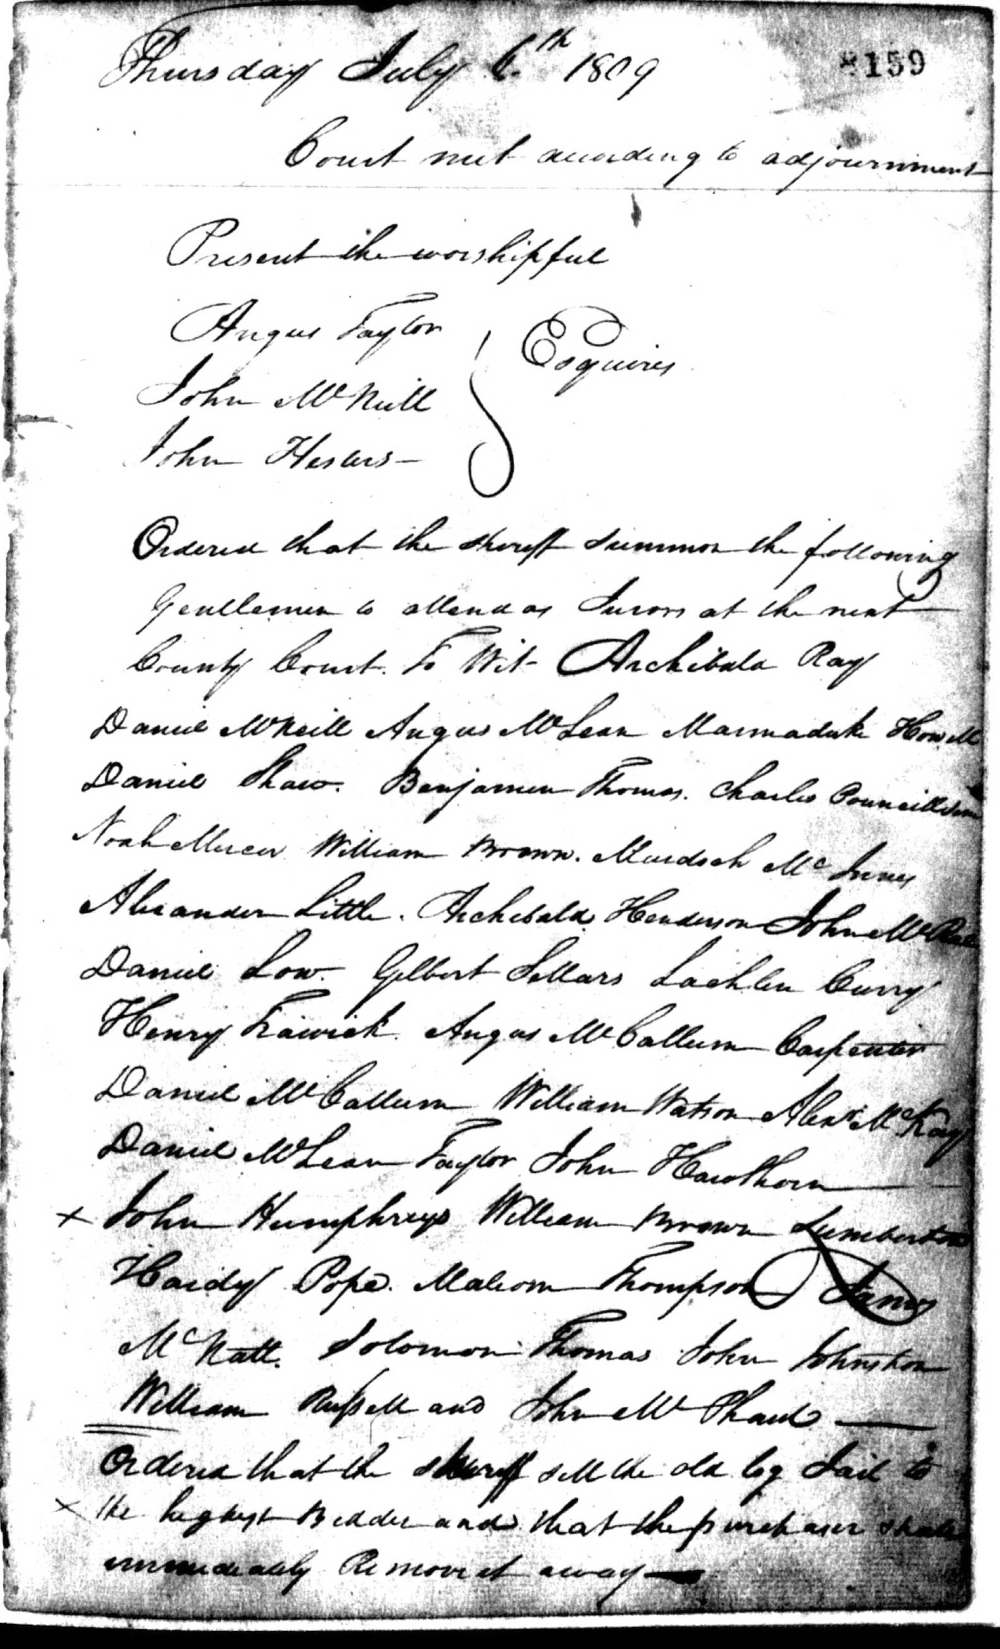 Thursday July 6th 1809
159
Court met according to adjournment
Present the worshipful
Angus Taylor
John McNeill
Esquires
John Hesters
Ordered that the sheriff summon the following
Gentlemen to attend as Jurors at the next
County Court. To Wit Archibald Ray
Daniel McNeill Angus McLean Marmaduke Howell
Daniel Shaw. Benjamin Thomas. Charles Councill
Noah Mercer William Brown. Murdoch McInnes
Alexander Little. Archibald Henderson John
Daniel Low. Gilbert Sellars Lachlin Curry
Henry Trawick. Angus McCallum Carpenter
Daniel McCallum William Watson Alexr McKay
Daniel McLean Taylor John Hawthorn
x John Humphreys William Brown Lumberton
Hardy Pope. Malcom Thompson James
McNatt. Solomon Thomas John Johnston
William Russell and John McPhaul
Ordered that the sheriff sell the old log Jail to
x the highest Bidder and that the purchaser shall
immediately Remove it away